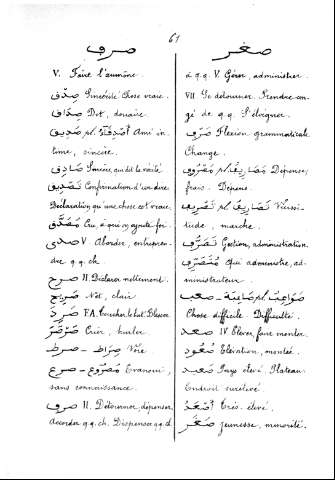 61
صرف
V. Faire l'aumône.
صِدْق Sincérité Chose vraie.
صِدَاق Dot, douaire.
صَدِيق pl. أَصْدِقَاء Ami in-
time, sincère.
صَادِق Sincère, qui dit la vérité.
تَصْدِيق Confirmation d'un dire.
Déclaration qu'une chose est vraie.
مُصَدَّق Cru, à qui on ajoute foi.
صدى V Aborder, entrepren-
dre q.q. ch.
صرح II. Déclarer nettement.
صَرِيح Net, clair
صَرَدَ F.A. Toucher le but. Blesser
صَرْصَرَ Crier, hurler.
صرط - صِرَاط Voie.
صرع - مَصْرُوع Evanoui,
sans connaissance.
صرف II. Détourner, dépenser,
Accorder q.q. ch. Dispenser q.q. ch.
صغر
à q.q. V. Gérer, administrer.
VII Se détourner. Prendre con-
gé de q.q. S'éloigner.
صَرْف Flexion grammaticale
Change.
مَصْرُوف pl. مَصَارِيف Dépense,
frais. Dépensé.
تَصْرِيف pl. تَصَارِيف Vicissi-
tude, marche.
تَصَرُّف Gestion, administration.
مُتَصَرِّف Qui administre, ad-
ministrateur.
صعب
Chose difficile Difficulté.
صعد IV Elever, faire monter.
صُعُود Elévation, montée.
صَعِيد Pays élevé Plateau.
Endroit surélevé
أَصْعَدُ Très élevé.
صَغَر Jeunesse, minorité.